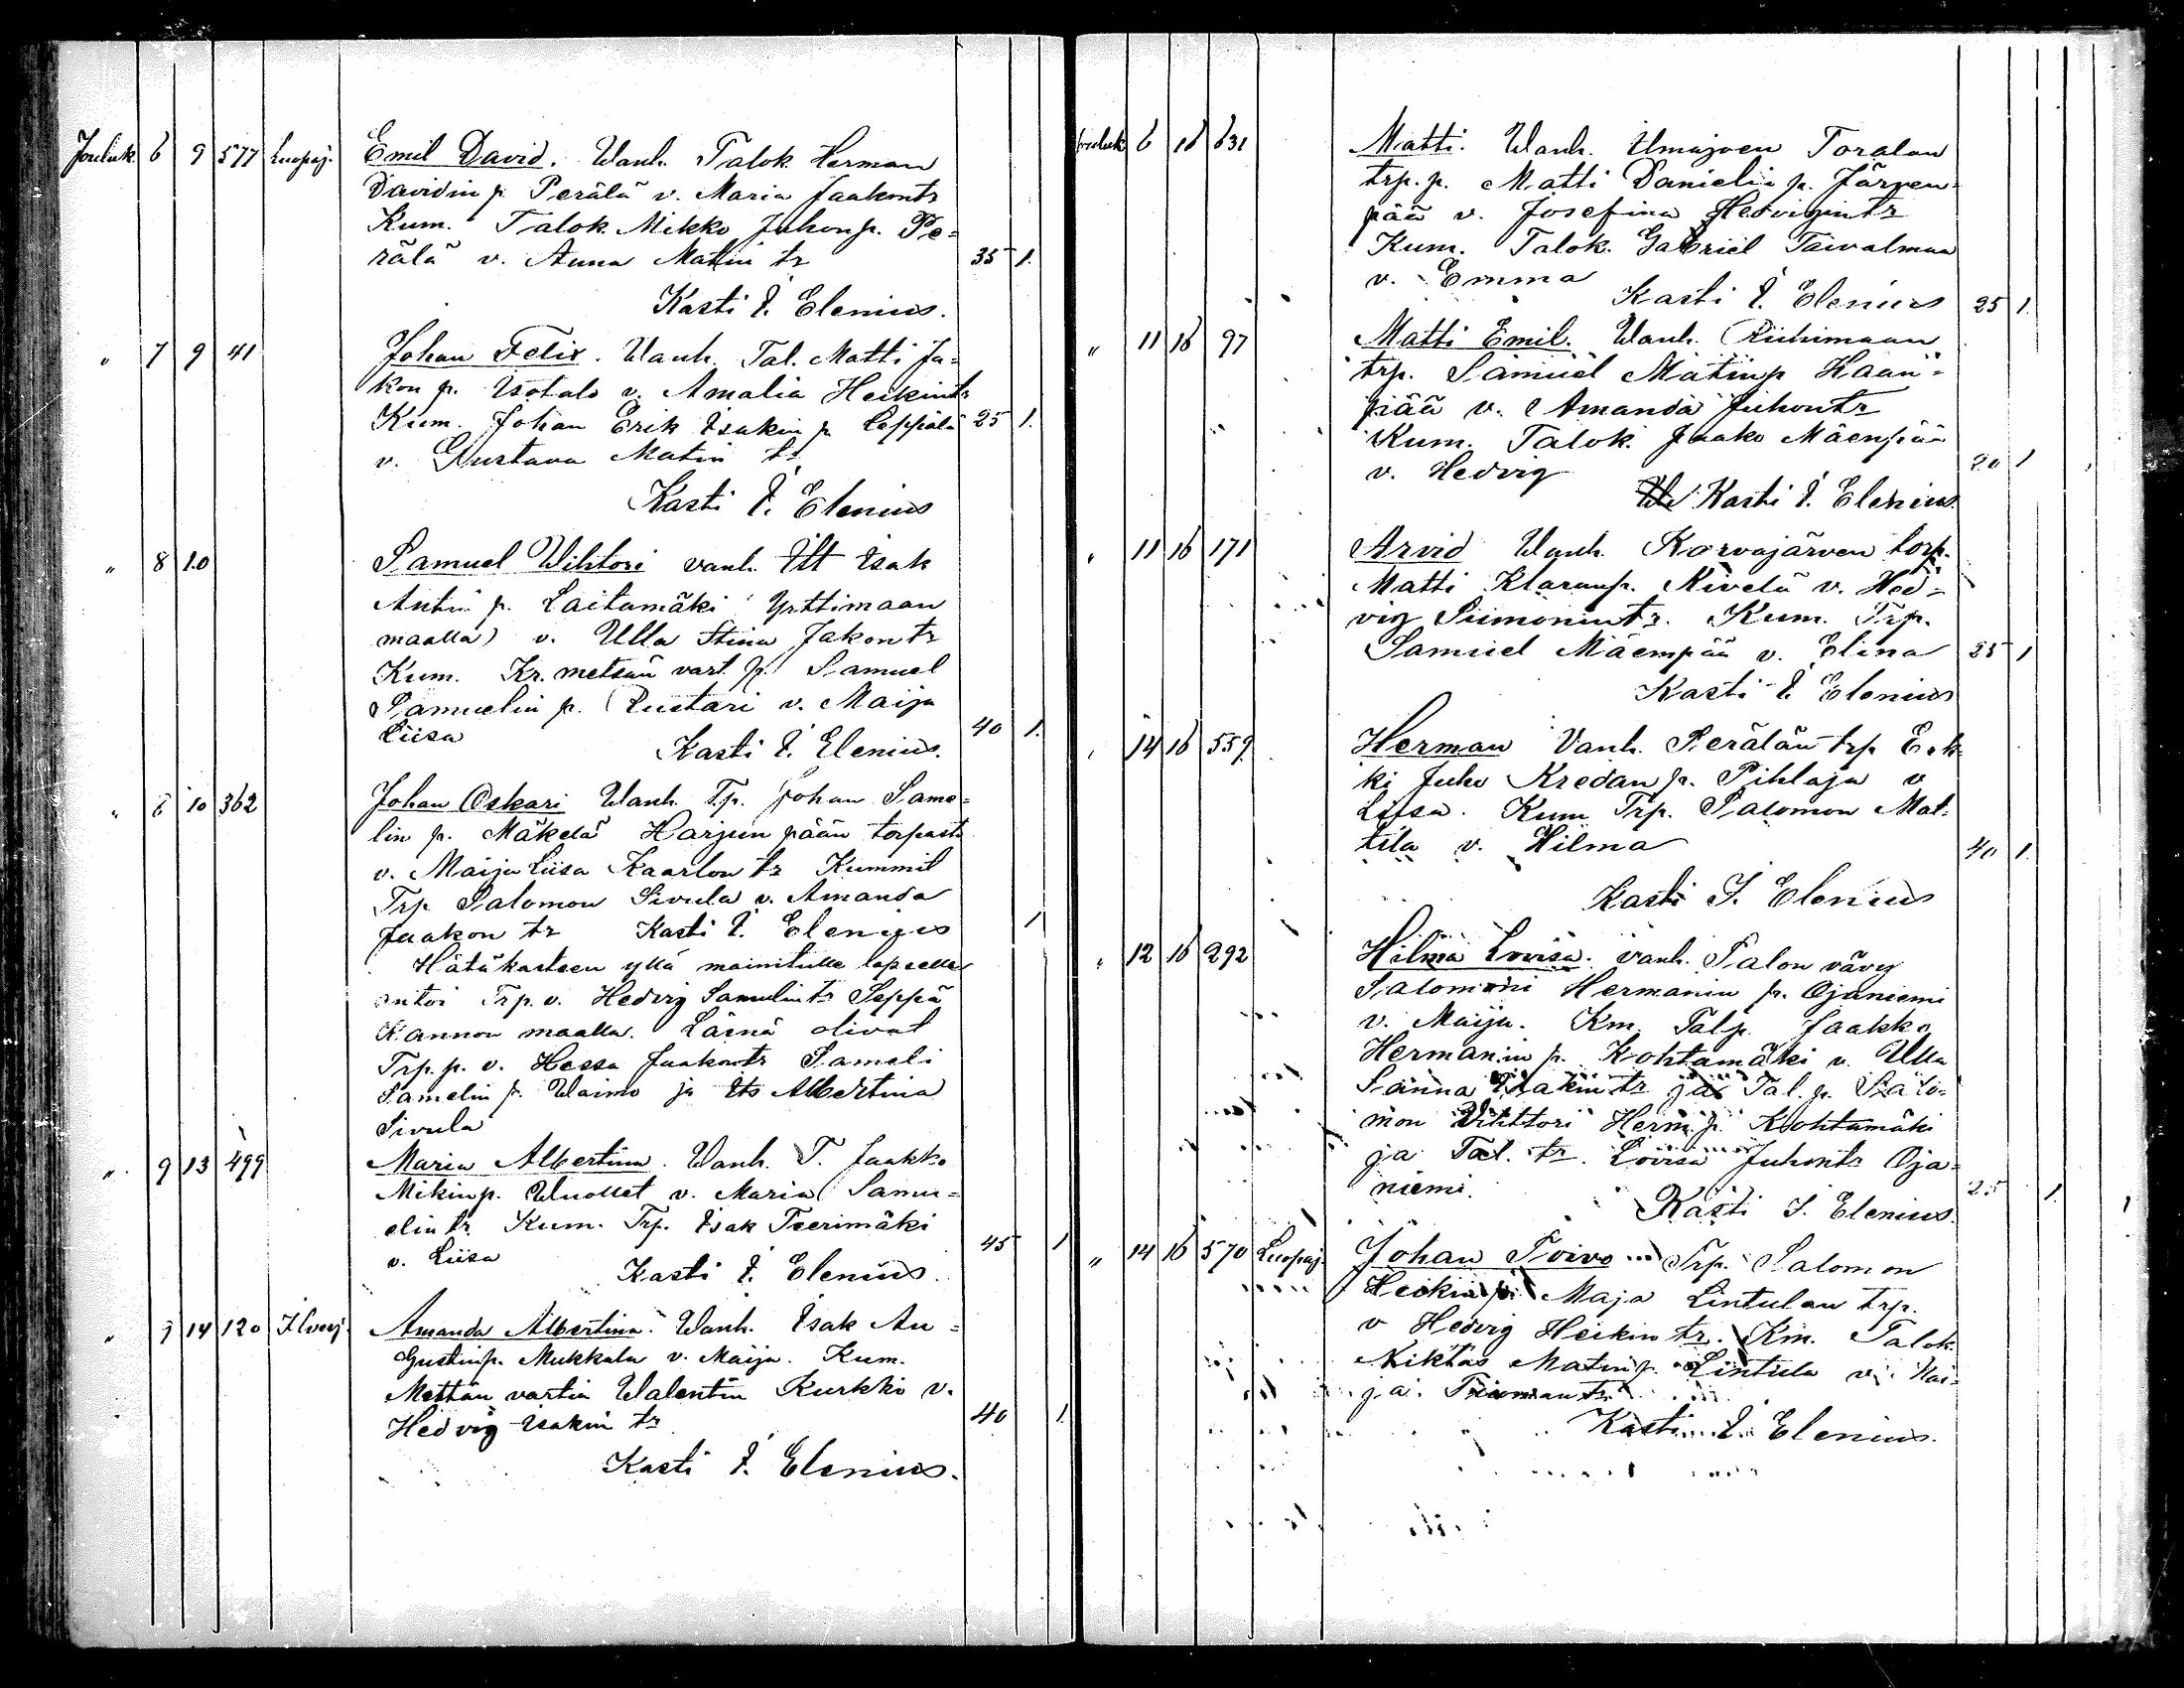 Jouluk. 6 9 577 Luopaj. Emil David. Wanh. Talok. Herman
Davidin p. Perälä v. Maria Jaakontr
Kum. Talok. Mikko Juhonp. Pe=
rälä v. Anna Matin tr 35 1.
Kasti I. Elenius.
" 7 9 41 Johan Felix. Wanh. Tal. Matti Ja=
kon p. Isotalo v. Amalia Heikintr
Kum. Johan Erik Isakin p. Leppälä 25 1.
v. Gustava Matin tr
Kasti I. Elenius
" 8 10 Samuel Wihtori vanh. Itt Isak
Antin p. Laitamäki Yrttimaan
maalla) v. Ulla Stina Jakontr
Kum. Kr. metsän vart. p. Samuel
Samuelin p. Rustari v. Maija
Liisa 40 1.
Kasti I. Elenius.
" 6 10 362 Johan Oskari Wanh. Tp. Johan Same=
lin p. Mäkelä Harjunpään torpasta
v. Maija Liisa Kaarlon tr Kummit
Trp Salomon Sivula v. Amanda
Jaakon tr Kasti I. Elenius 1
Hätäkasteen yllä mainitulle lapselle
antoi Trp. v. Hedvig Samulintr Seppä
Kannon maalla. Läsnä olivat
Trp. p. v. Hessa Jaakontr Sameli
Samelin p. Waimo ja Its Albertina
Sivula
" 9 13 499 Maria Albertina. Wanh. T. Jaakko
Mikinp. Wuollet v. Maria Samu=
elin tr. Kum. Trp. Isak Teerimäki
v. Liisa 45 1
Kasti I. Elenius.
" 9 14 120 Ilvesj. Amanda Albertina. Wanh. Isak Au=
gustinp. Mukkala v. Maija. Kum.
Mettän vartia Walentin Kurkki v.
Hedvig Isakin tr 40 1.
Kasti I. Elenius.
Jouluk 6 16 631 Matti. Wanh. Ilmajoen Toralan
trp. p. Matti Danielin p. Järven=
pää v. Josefina Hedvigintr
Kum. Talok. Gabriel Taivalmaa
v. Emma
Kasti I. Elenius 25 1.
" 11 16 97 Matti Emil. Wanh. Riihimaan
trp. Samuel Matinp Haan=
pää v. Amanda Juhontr
Kum. Talok. Jaako Mäenpää
v. Hedvig 20 1
Kasti I. Elenius.
" 11 16 171 Arvid Wanh. Korvajärven torp.
Matti Klaranp. Kivelä v. Hed=
vig Siimonintr. Kum. Trp.
Samuel Mäempää v. Elina 25 1
Kasti I. Elenius
" 14 16 559 Herman Vanh. Perälän trp Erk=
ki Juho Kredan p. Pihlaja v
Liisa. Kum Trp. Salomon Mat=
tila v. Hilma 40 1.
Kasti I. Elenius
" 12 16 292 Hilma Lovisa. vanh. Salon vävy
Salomoni Hermanin p. Ojaniemi
v. Maija. Km. Talp. Jaakko
Hermanin p. Kohtamäki v. Ulla
Sanna Isakin tr ja Tal. p. Salo=
mon Vihttori Herm. p. Kohtamäki
ja Tal. tr. Lovisa Juhontr Oja=
niemi. 25 1.
Kasti I. Elenius.
" 14 16 570 Luopaj. Johan Toivo Trp. Salomon
Heikin p. Maja Lintulan trp.
v Hedvig Heikin tr. Km. Talok.
Niktas Matin p. Lintula v. Mai=
ja
Kasti I. Elenius.